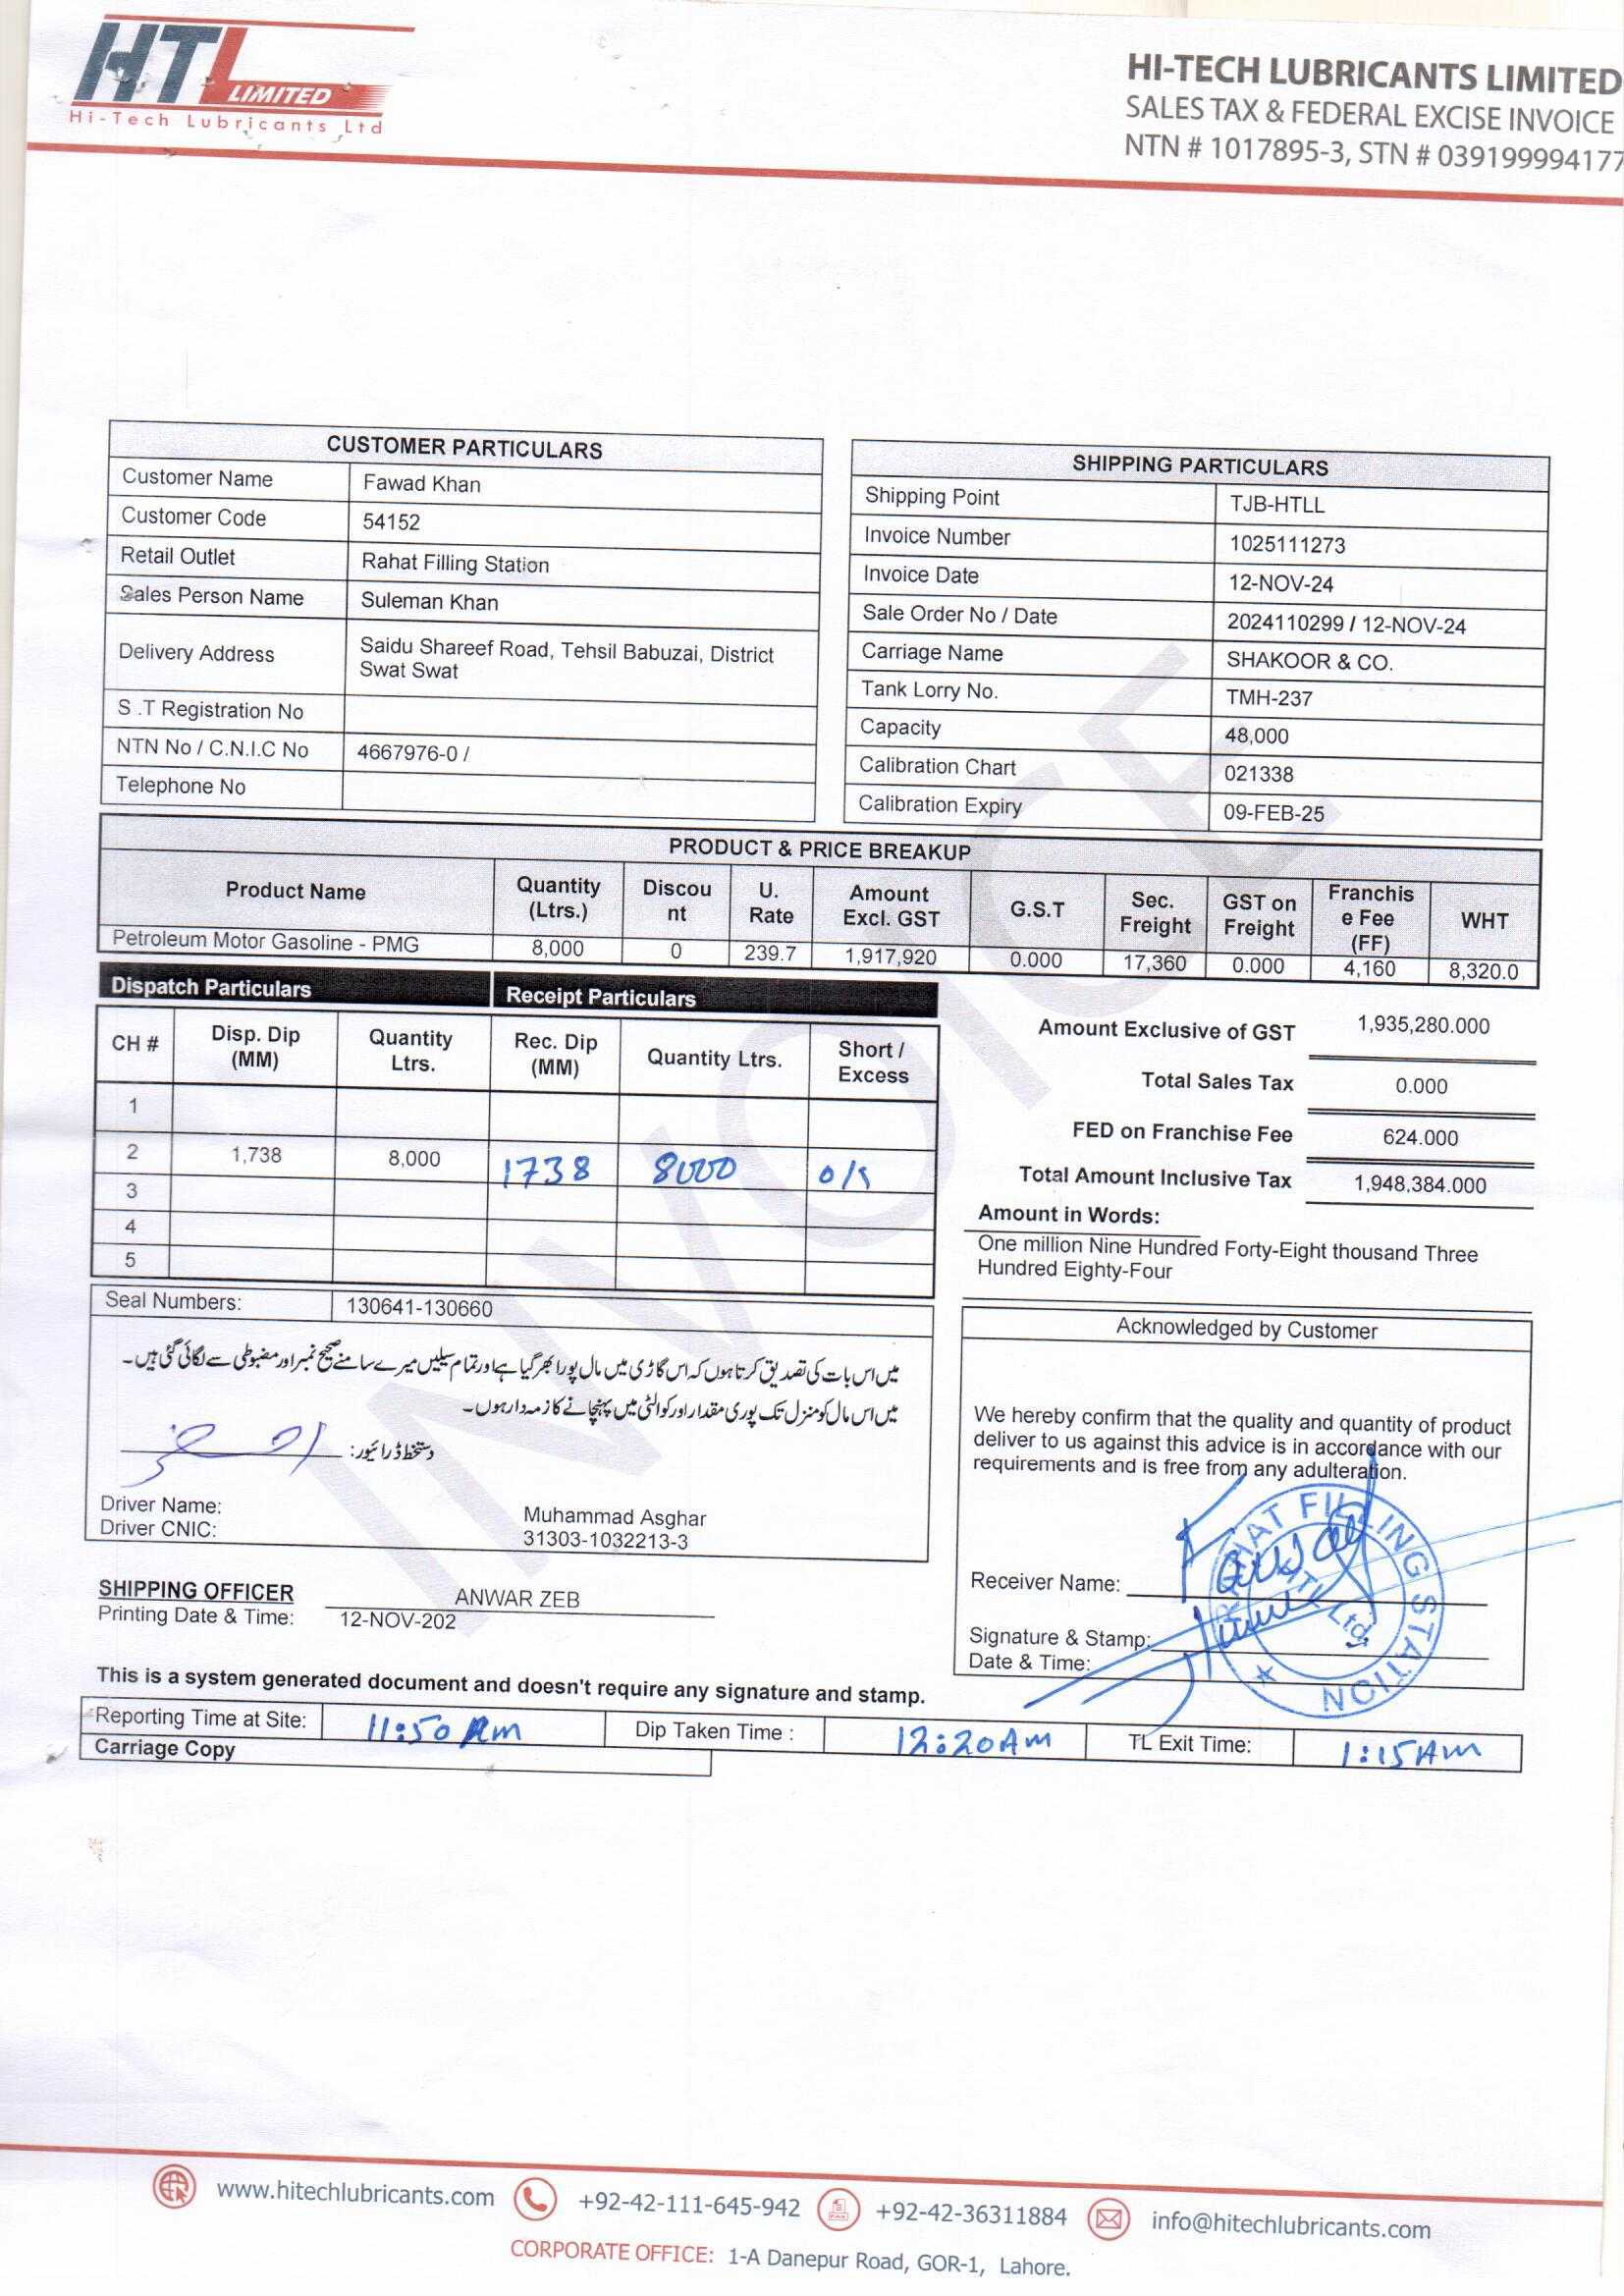 HTL LIMITED
Hi-Tech Lubricants Ltd
HI-TECH LUBRICANTS LIMITED
SALES TAX & FEDERAL EXCISE INVOICE
NTN # 1017895-3, STN # 039199994177
CUSTOMER PARTICULARS
Customer Name Fawad Khan
Customer Code 54152
Retail Outlet Rahat Filling Station
Sales Person Name Suleman Khan
Delivery Address Saidu Shareef Road, Tehsil Babuzai, District
Swat Swat
S .T Registration No
NTN No / C.N.I.C No 4667976-0 /
Telephone No
SHIPPING PARTICULARS
Shipping Point TJB-HTLL
Invoice Number 1025111273
Invoice Date 12-NOV-24
Sale Order No / Date 2024110299 / 12-NOV-24
Carriage Name SHAKOOR & CO.
Tank Lorry No. TMH-237
Capacity 48,000
Calibration Chart 021338
Calibration Expiry 09-FEB-25
INVOICE
PRODUCT & PRICE BREAKUP
Product Name Quantity (Ltrs.) Discou nt U. Rate Amount Excl. GST G.S.T Sec. Freight GST on Freight Franchis e Fee (FF) WHT
Petroleum Motor Gasoline - PMG 8,000 0 239.7 1,917,920 0.000 17,360 0.000 4,160 8,320.0
Dispatch Particulars Receipt Particulars
CH # Disp. Dip (MM) Quantity Ltrs. Rec. Dip (MM) Quantity Ltrs. Short / Excess
1
2 1,738 8,000 1738 8000
3
4
5
Amount Exclusive of GST 1,935,280.000
Total Sales Tax 0.000
FED on Franchise Fee 624.000
Total Amount Inclusive Tax 1,948,384.000
Amount in Words:
One million Nine Hundred Forty-Eight thousand Three
Hundred Eighty-Four
Seal Numbers: 130641-130660
میں اس بات کی تصدیق کرتا ہوں کہ اس گاڑی میں مال پورا بھر گیا ہے اور تمام سیلیں میرے سامنے صحیح نمبر اور مضبوطی سے لگائی گئی ہیں۔
میں اس مال کو منزل تک پوری مقدار اور کوالٹی میں پہنچانے کا زمہ دار ہوں۔
دستخط ڈرائیور:
Driver Name: Muhammad Asghar
Driver CNIC: 31303-1032213-3
Acknowledged by Customer
We hereby confirm that the quality and quantity of product
deliver to us against this advice is in accordance with our
requirements and is free from any adulteration.
Receiver Name:
Signature & Stamp:
Date & Time:
FILLING STATION
HTL Ltd.
SHIPPING OFFICER ANWAR ZEB
Printing Date & Time: 12-NOV-202
This is a system generated document and doesn't require any signature and stamp.
Reporting Time at Site: 11:50 Dip Taken Time : 12:20 Am TL Exit Time: 1:15 Am
Carriage Copy
www.hitechlubricants.com +92-42-111-645-942 +92-42-36311884 info@hitechlubricants.com
CORPORATE OFFICE: 1-A Danepur Road, GOR-1, Lahore.